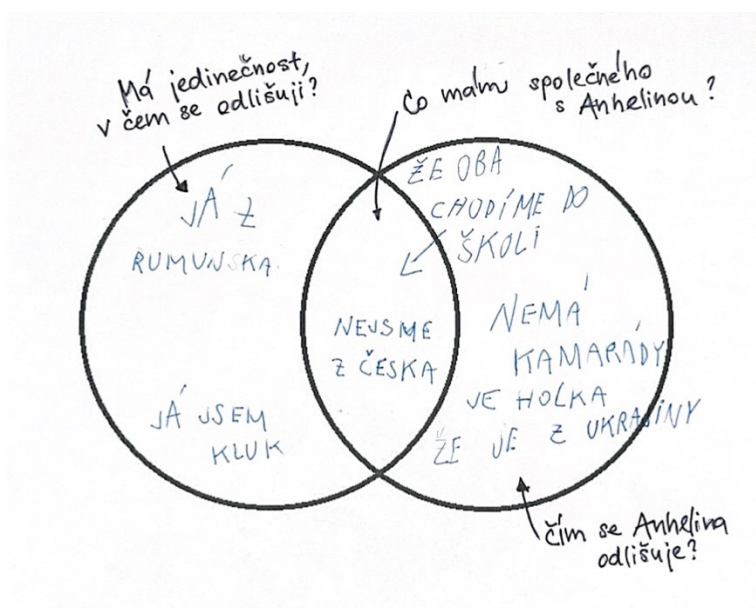 Má jedinečnost,
v čem se odlišuji?
Co mám společného
s Anhelinou?
JÁ Z
RUMUNSKA
JÁ JSEM
KLUK
ŽE OBA
CHODÍME DO
ŠKOLI
NEJSME
Z ČESKA
NEMÁ
KAMARÁDY
JE HOLKA
ŽE JE Z UKRAJINY
čím se Anhelina
odlišuje?